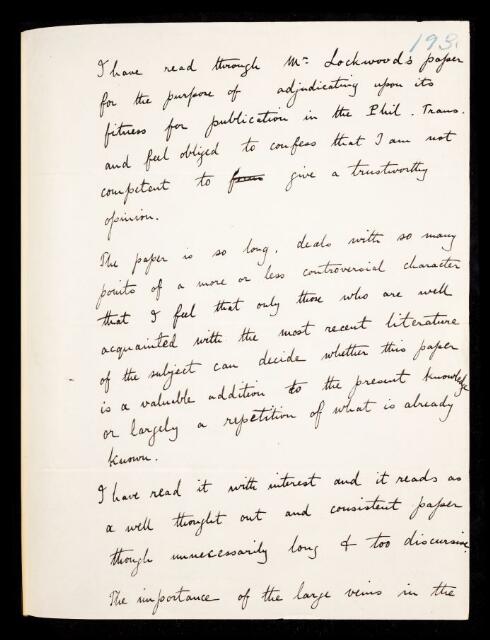 193.
I have read through Mr. Lockwood's paper
for the purpose of adjudicating upon its
fitness for publication in the Phil. Trans.
and feel obliged to confess that I am not
competent to give a trustworthy
opinion.
The paper is so long, deals with so many
points of a more or less controversial character
that I feel that only those who are well
acquainted with the most recent literature
of the subject can decide whether this paper
is a valuable addition to the present knowledge
or largely a repetition of what is already
known.
I have read it with interest and it reads as
a well thought out and consistent paper
though unnecessarily long & too discursive.
The importance of the large veins in the